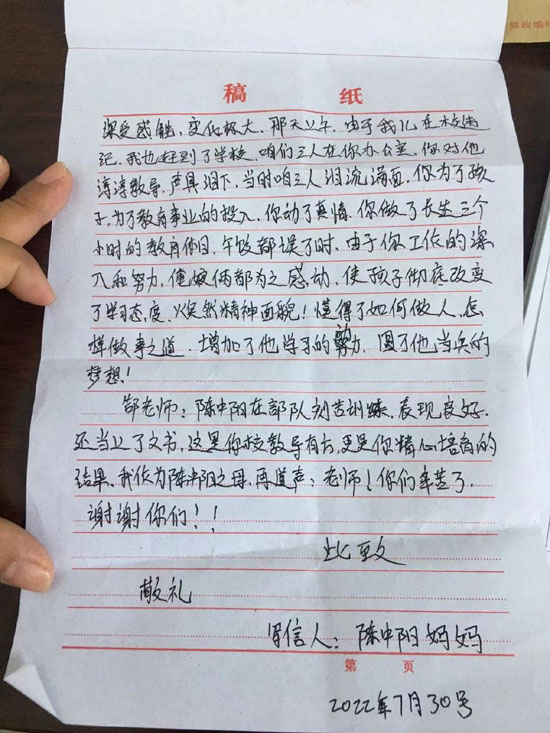 稿 纸
深受感触，变化极大，那天上午，由于我儿在校违
纪，我也赶到了学校，咱们三人在你办公室，你对他
谆谆教导，声具泪下，当时咱三人泪流满面，你为了孩
子，为了教育事业的投入，你动了真情，你做了长达三个
小时的教育作用，午饭都误了时，由于你工作的深
入和努力，俺娘俩都为之感动，使孩子彻底改变
了学习态度，焕然精神面貌！懂得了如何做人，怎
样做事之道，增加了他学习的努力，圆了他当兵的
梦想！
郜老师：陈中阳在部队刻苦训练，表现良好，
还当上了文书，这是你校教导有方，更是你精心培育的
结果，我作为陈中阳之母，再道声：老师！你们辛苦了，
谢谢你们！！
此致
敬礼
写信人：陈中阳妈妈
第 页
2022年7月30号